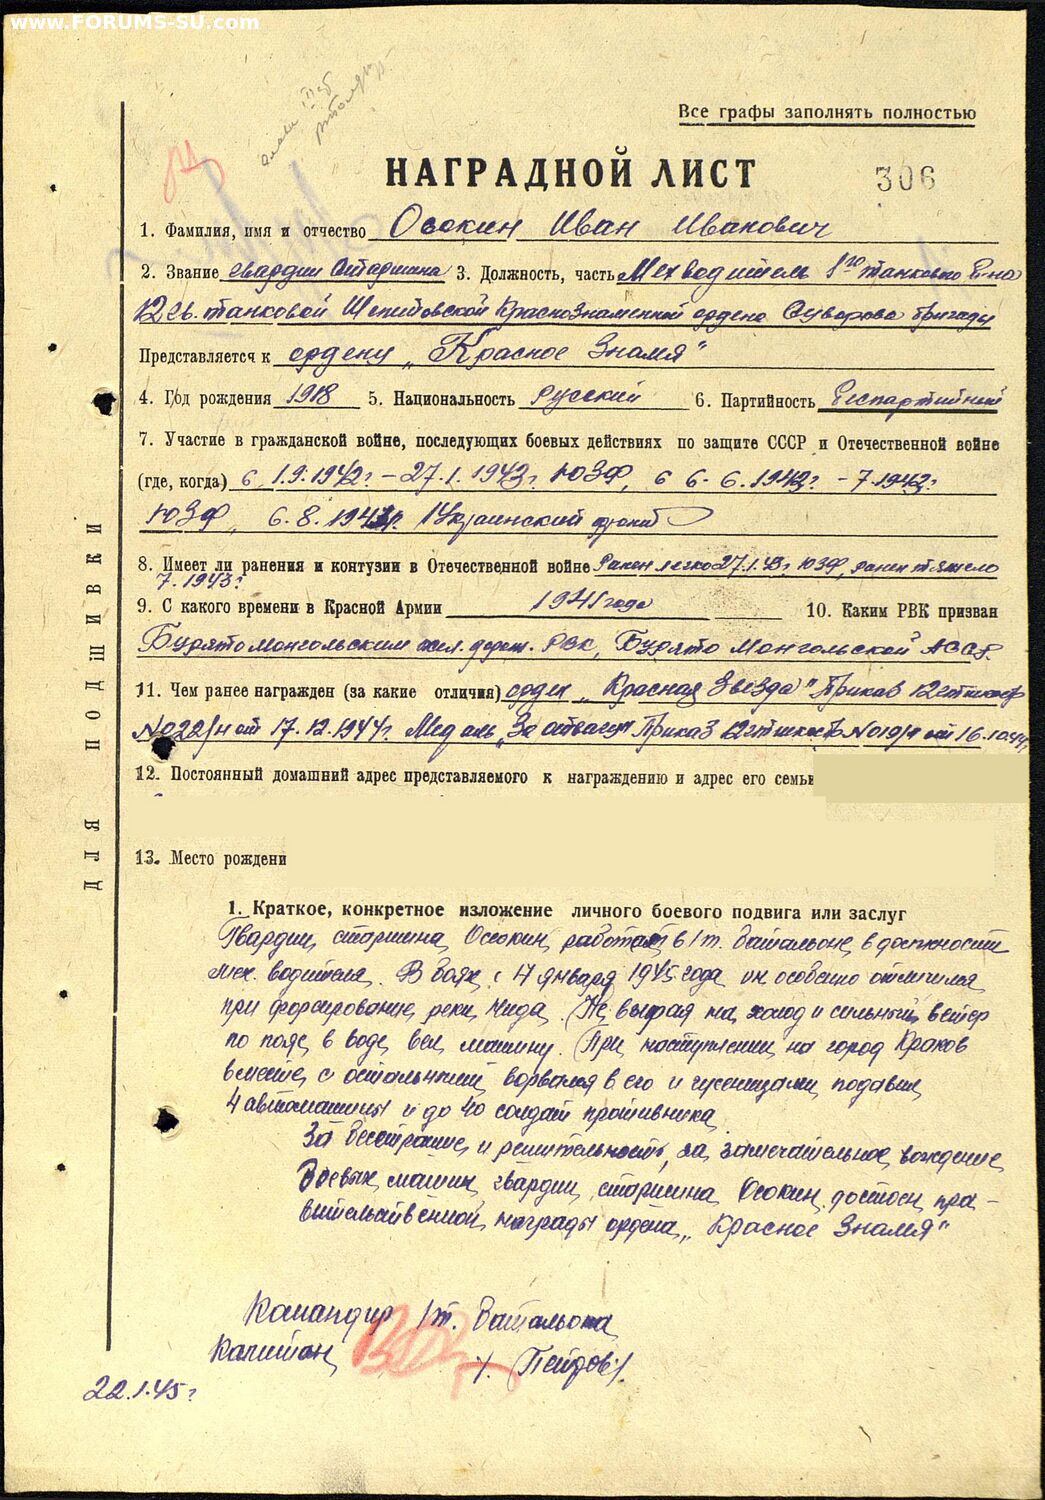 www.FORUMS-SU.com
Все графы заполнять полностью
НАГРАДНОЙ ЛИСТ 306
1. Фамилия, имя и отчество Осокин Иван Иванович
2. Звание гвардии Старшина 3. Должность, часть Мехводитель 1го танкового б-на
12 гв. танковой Шепетовской Краснознаменной ордена Суворова бригады
Представляется к ордену „Красное Знамя"
4. Год рождения 1918 5. Национальность Русский 6. Партийность Беспартийный
7. Участие в гражданской войне, последующих боевых действиях по защите СССР и Отечественной войне
(где, когда) с 1.9.1942г. – 27.1.1943г. ЮЗФ, с 6.6.1943г. – 7.1943г.
ЮЗФ, с 8.1944г. 1 Украинский фронт
8. Имеет ли ранения и контузии в Отечественной войне Ранен легко 27.1.43г. ЮЗФ, ранен тяжело
7.1943г.
9. С какого времени в Красной Армии 1941 года 10. Каким РВК призван
Бурятомонгольским жел. дорож. РВК, Бурято Монгольской АССР.
11. Чем ранее награжден (за какие отличия) орден „Красная Звезда" Приказ 12
№022/н от 17.12.1944г. Медаль „За отвагу" Приказ 12 №019/н от 16.10.44г
12. Постоянный домашний адрес представляемого к награждению и адрес его семьи
13. Место рождени
1. Краткое, конкретное изложение личного боевого подвига или заслуг
Гвардии старшина Осокин работая в 1 т. батальоне в должности
мех. водителя. В боях с 17 января 1945 года он особенно отличился
при форсировании реки Нида. Не взирая на холод и сильный ветер
по пояс в воде вел машину. При наступлении на город Краков
вместе с остальными ворвался в его и гусеницами подавил
4 автомашины и до 40 солдат противника.
За бесстрашие и решительность, за замечательное вождение
боевых машин гвардии старшина Осокин достоин пра-
вительственной награды ордена „Красное Знамя"
Командир 1 т. батальона
Капитан
22.1.45г.
ДЛЯ ПОДШИВКИ